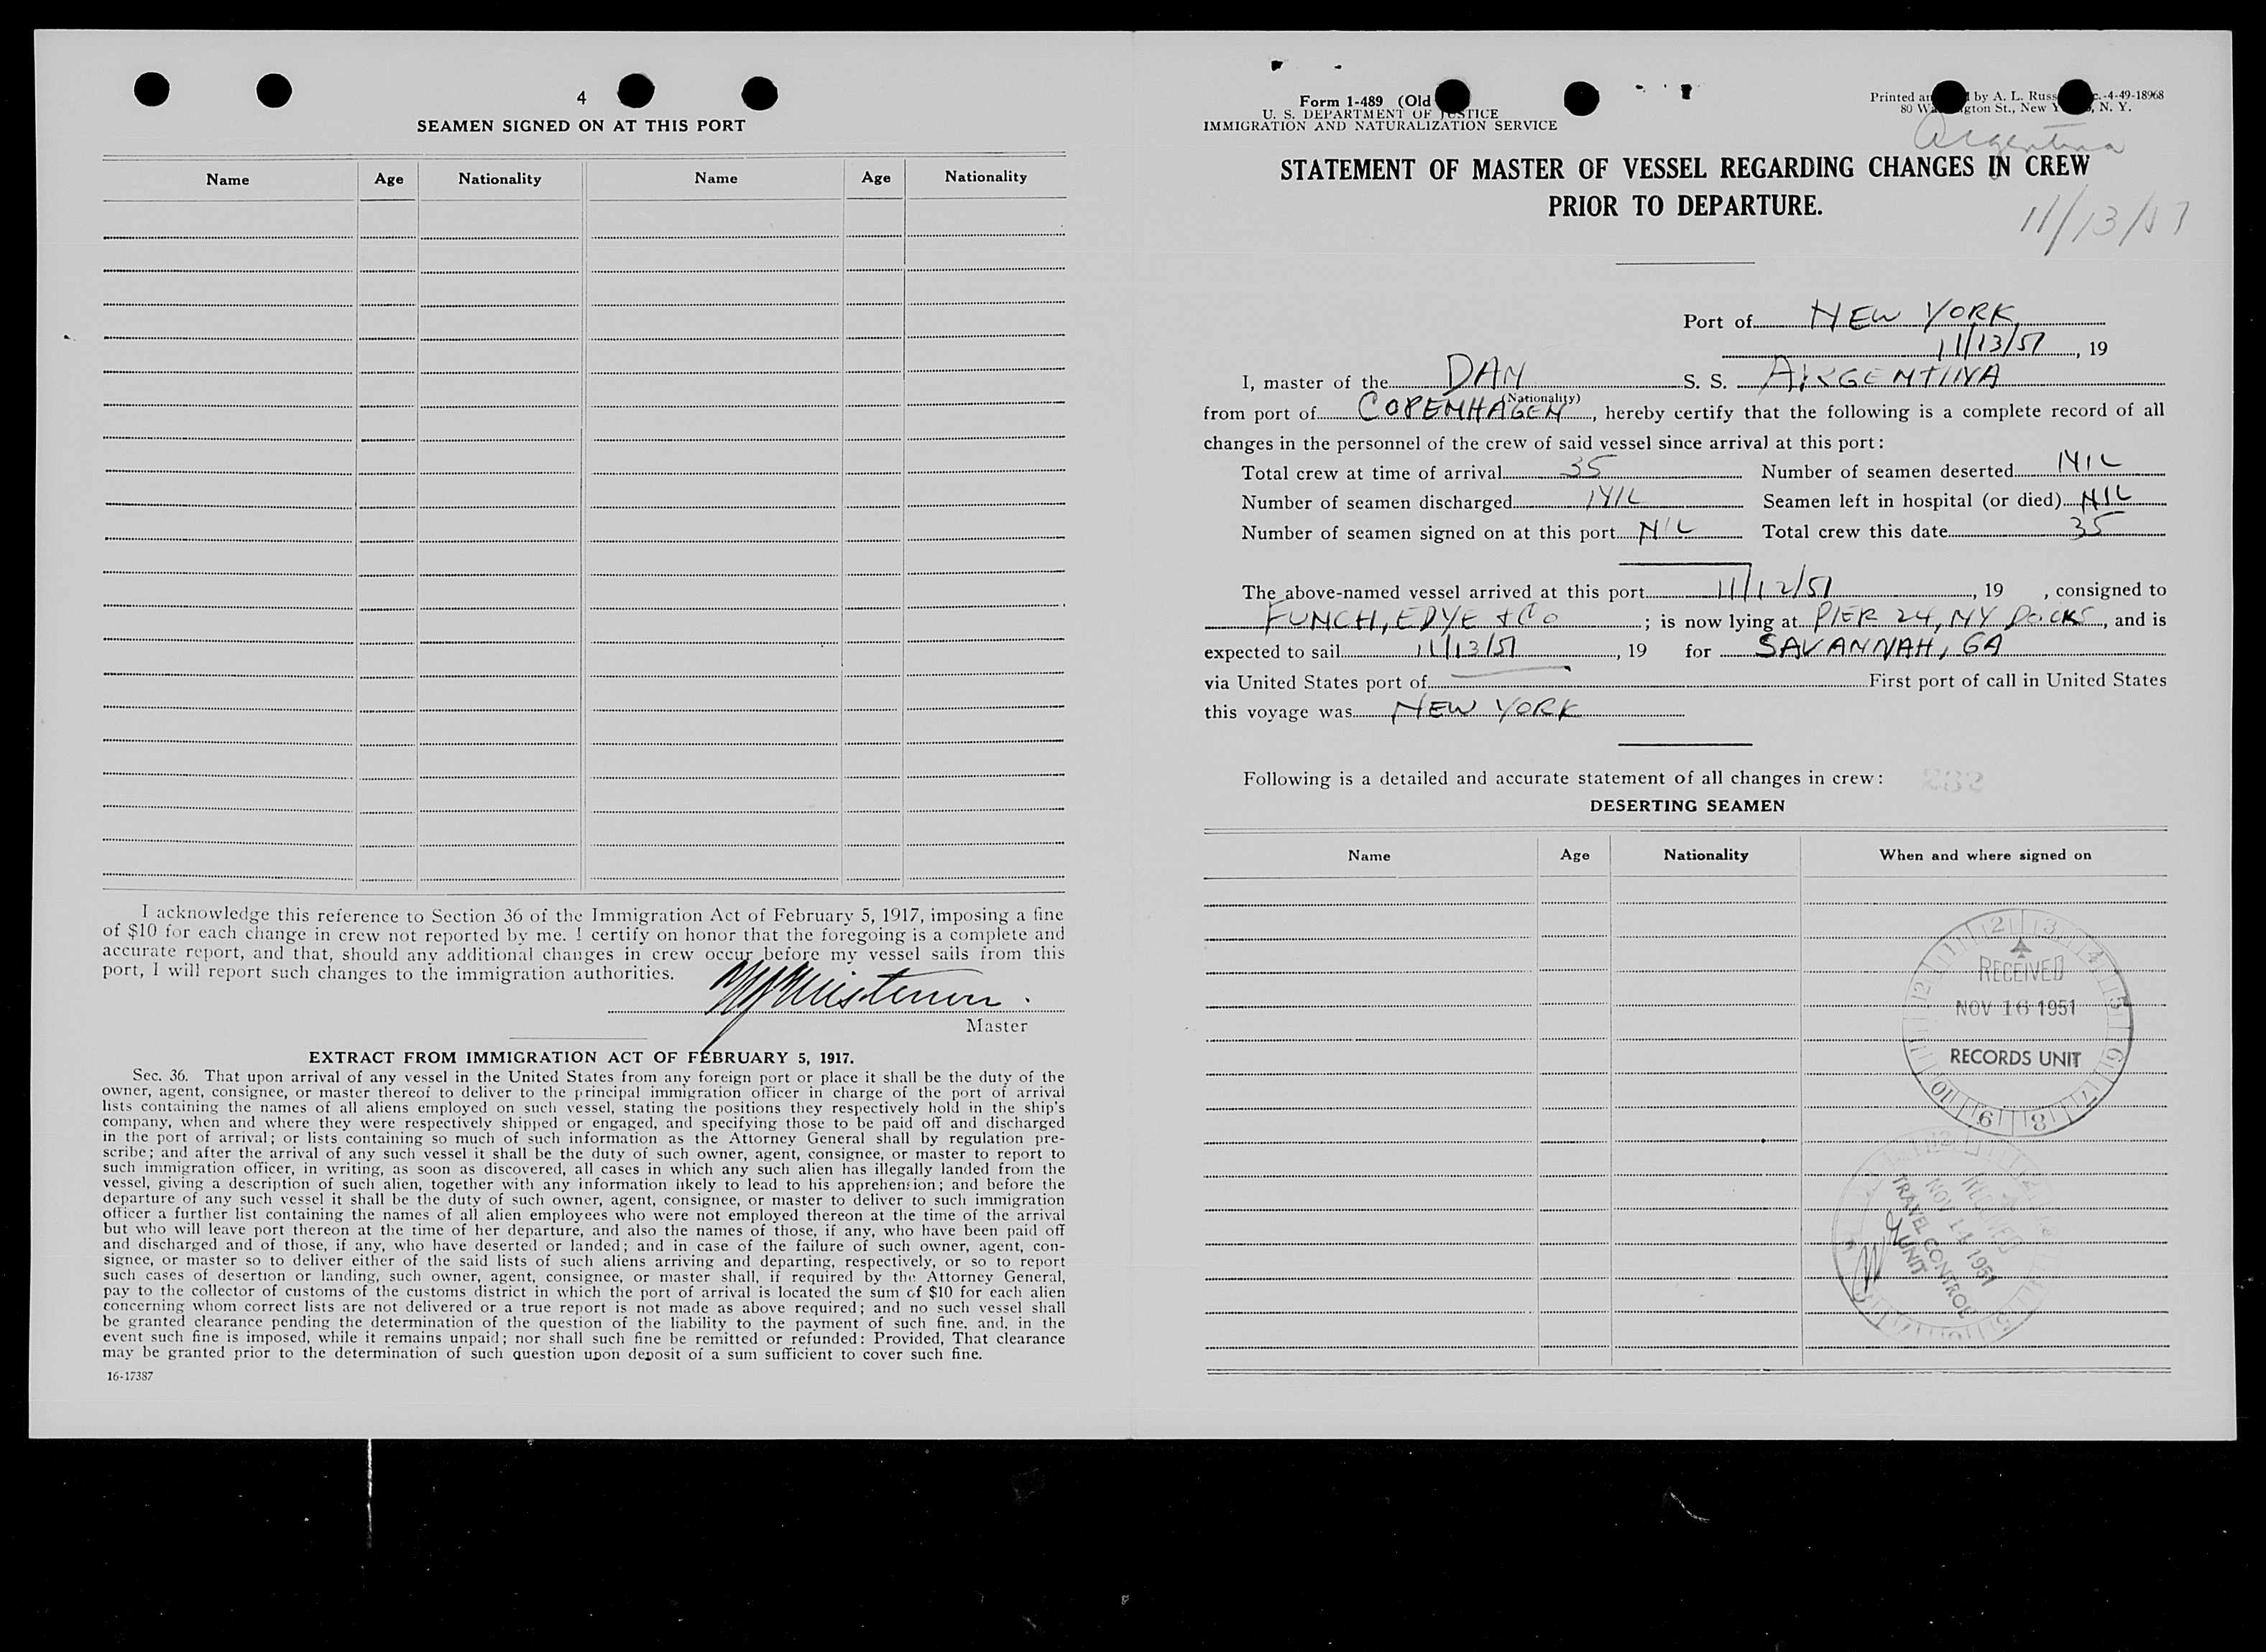 4
SEAMEN SIGNED ON AT THIS PORT
Name Age Nationality Name Age Nationality
I acknowledge this reference to Section 36 of the Immigration Act of February 5, 1917, imposing a fine
of $10 for each change in crew not reported by me. I certify on honor that the foregoing is a complete and
accurate report, and that, should any additional changes in crew occur before my vessel sails from this
port, I will report such changes to the immigration authorities.
Master
EXTRACT FROM IMMIGRATION ACT OF FEBRUARY 5, 1917.
Sec. 36. That upon arrival of any vessel in the United States from any foreign port or place it shall be the duty of the
owner, agent, consignee, or master thereof to deliver to the principal immigration officer in charge of the port of arrival
lists containing the names of all aliens employed on such vessel, stating the positions they respectively hold in the ship's
company, when and where they were respectively shipped or engaged, and specifying those to be paid off and discharged
in the port of arrival; or lists containing so much of such information as the Attorney General shall by regulation pre-
scribe; and after the arrival of any such vessel it shall be the duty of such owner, agent, consignee, or master to report to
such immigration officer, in writing, as soon as discovered, all cases in which any such alien has illegally landed from the
vessel, giving a description of such alien, together with any information likely to lead to his apprehension; and before the
departure of any such vessel it shall be the duty of such owner, agent, consignee, or master to deliver to such immigration
officer a further list containing the names of all alien employees who were not employed thereon at the time of the arrival
but who will leave port thereon at the time of her departure, and also the names of those, if any, who have been paid off
and discharged and of those, if any, who have deserted or landed; and in case of the failure of such owner, agent, con-
signee, or master so to deliver either of the said lists of such aliens arriving and departing, respectively, or so to report
such cases of desertion or landing, such owner, agent, consignee, or master shall, if required by the Attorney General,
pay to the collector of customs of the customs district in which the port of arrival is located the sum of $10 for each alien
concerning whom correct lists are not delivered or a true report is not made as above required; and no such vessel shall
be granted clearance pending the determination of the question of the liability to the payment of such fine, and, in the
event such fine is imposed, while it remains unpaid; nor shall such fine be remitted or refunded: Provided, That clearance
may be granted prior to the determination of such question upon deposit of a sum sufficient to cover such fine.
16-17387
Form 1-489 (Old
U. S. DEPARTMENT OF JUSTICE
IMMIGRATION AND NATURALIZATION SERVICE
Printed an by A. L. Russ c.-4-49-18968
80 Washington St., New Y , N. Y.
Argentina
STATEMENT OF MASTER OF VESSEL REGARDING CHANGES IN CREW
PRIOR TO DEPARTURE.
11/13/51
Port of NEW YORK
11/13/51, 19
I, master of the DAN S. S. ARGENTINA
(Nationality)
from port of COPENHAGEN, hereby certify that the following is a complete record of all
changes in the personnel of the crew of said vessel since arrival at this port:
Total crew at time of arrival 35 Number of seamen deserted NIL
Number of seamen discharged NIL Seamen left in hospital (or died) NIL
Number of seamen signed on at this port NIL Total crew this date 35
The above-named vessel arrived at this port 11/12/51, 19 , consigned to
FUNCH, EDYE & Co; is now lying at PIER 24, NY DOCKS, and is
expected to sail 11/13/51, 19 for SAVANNAH, GA
via United States port of First port of call in United States
this voyage was NEW YORK
Following is a detailed and accurate statement of all changes in crew:
DESERTING SEAMEN
Name Age Nationality When and where signed on
RECEIVED
NOV 16 1951
RECORDS UNIT
1 2 3 4 5 6 7 8 9 10 11 12
RECEIVED
NOV 14 1951
TRAVEL CONTROL
UNIT